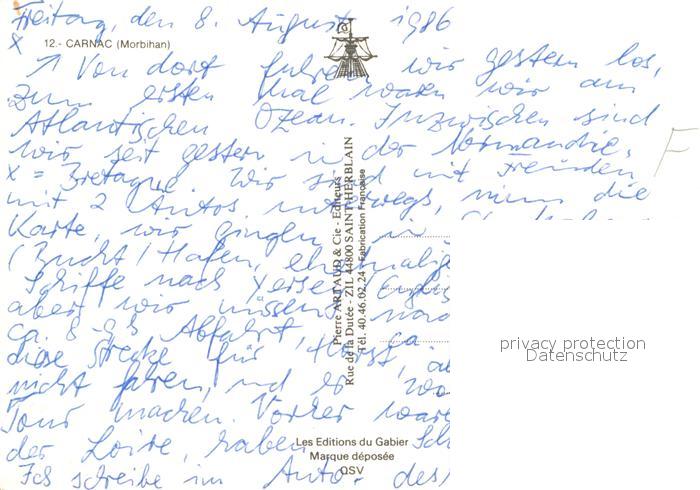 Freitag, den 8. August 1986
x
12.- CARNAC (Morbihan)
↑ Von dort fuhren wir gestern los,
zum ersten Mal waren wir am
Atlantischen Ozean. Inzwischen sind
wir seit gestern in der Normandie,
x = Bretagne. Wir sind mit Freunden
mit 2 Autos unterwegs, nimm die
Karte, wir gingen in
(Bucht/Hafen, ehemalige
Schiffe nach
aber wir müssen
ca. 8-9 Abfahrt, ca
diese Strecke für
nicht fahren, und er
Tour machen. Vorher waren
der Loire, haben
Ich schreibe im Auto. des
F
Pierre ARTAUD & Cie - Editeurs
Rue de la Dutée - ZIL 44800 SAINT-HERBLAIN
Tél. 40.46.02.24 - Fabrication Française
privacy protection
Datenschutz
Les Editions du Gabier
Marque déposée
QSV